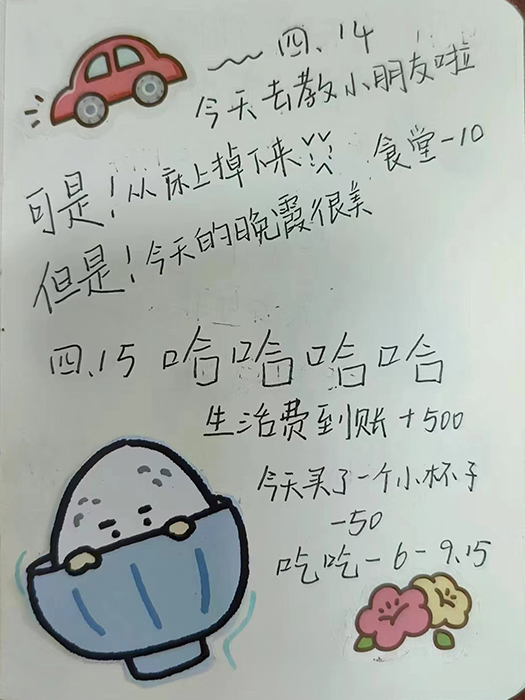 四、14
今天去教小朋友啦
可是!从床上掉下来 食堂-10
但是!今天的晚霞很美
四、15 哈哈哈哈
生活费到账+500
今天买了一个小杯子
-50
吃吃-6-9.15